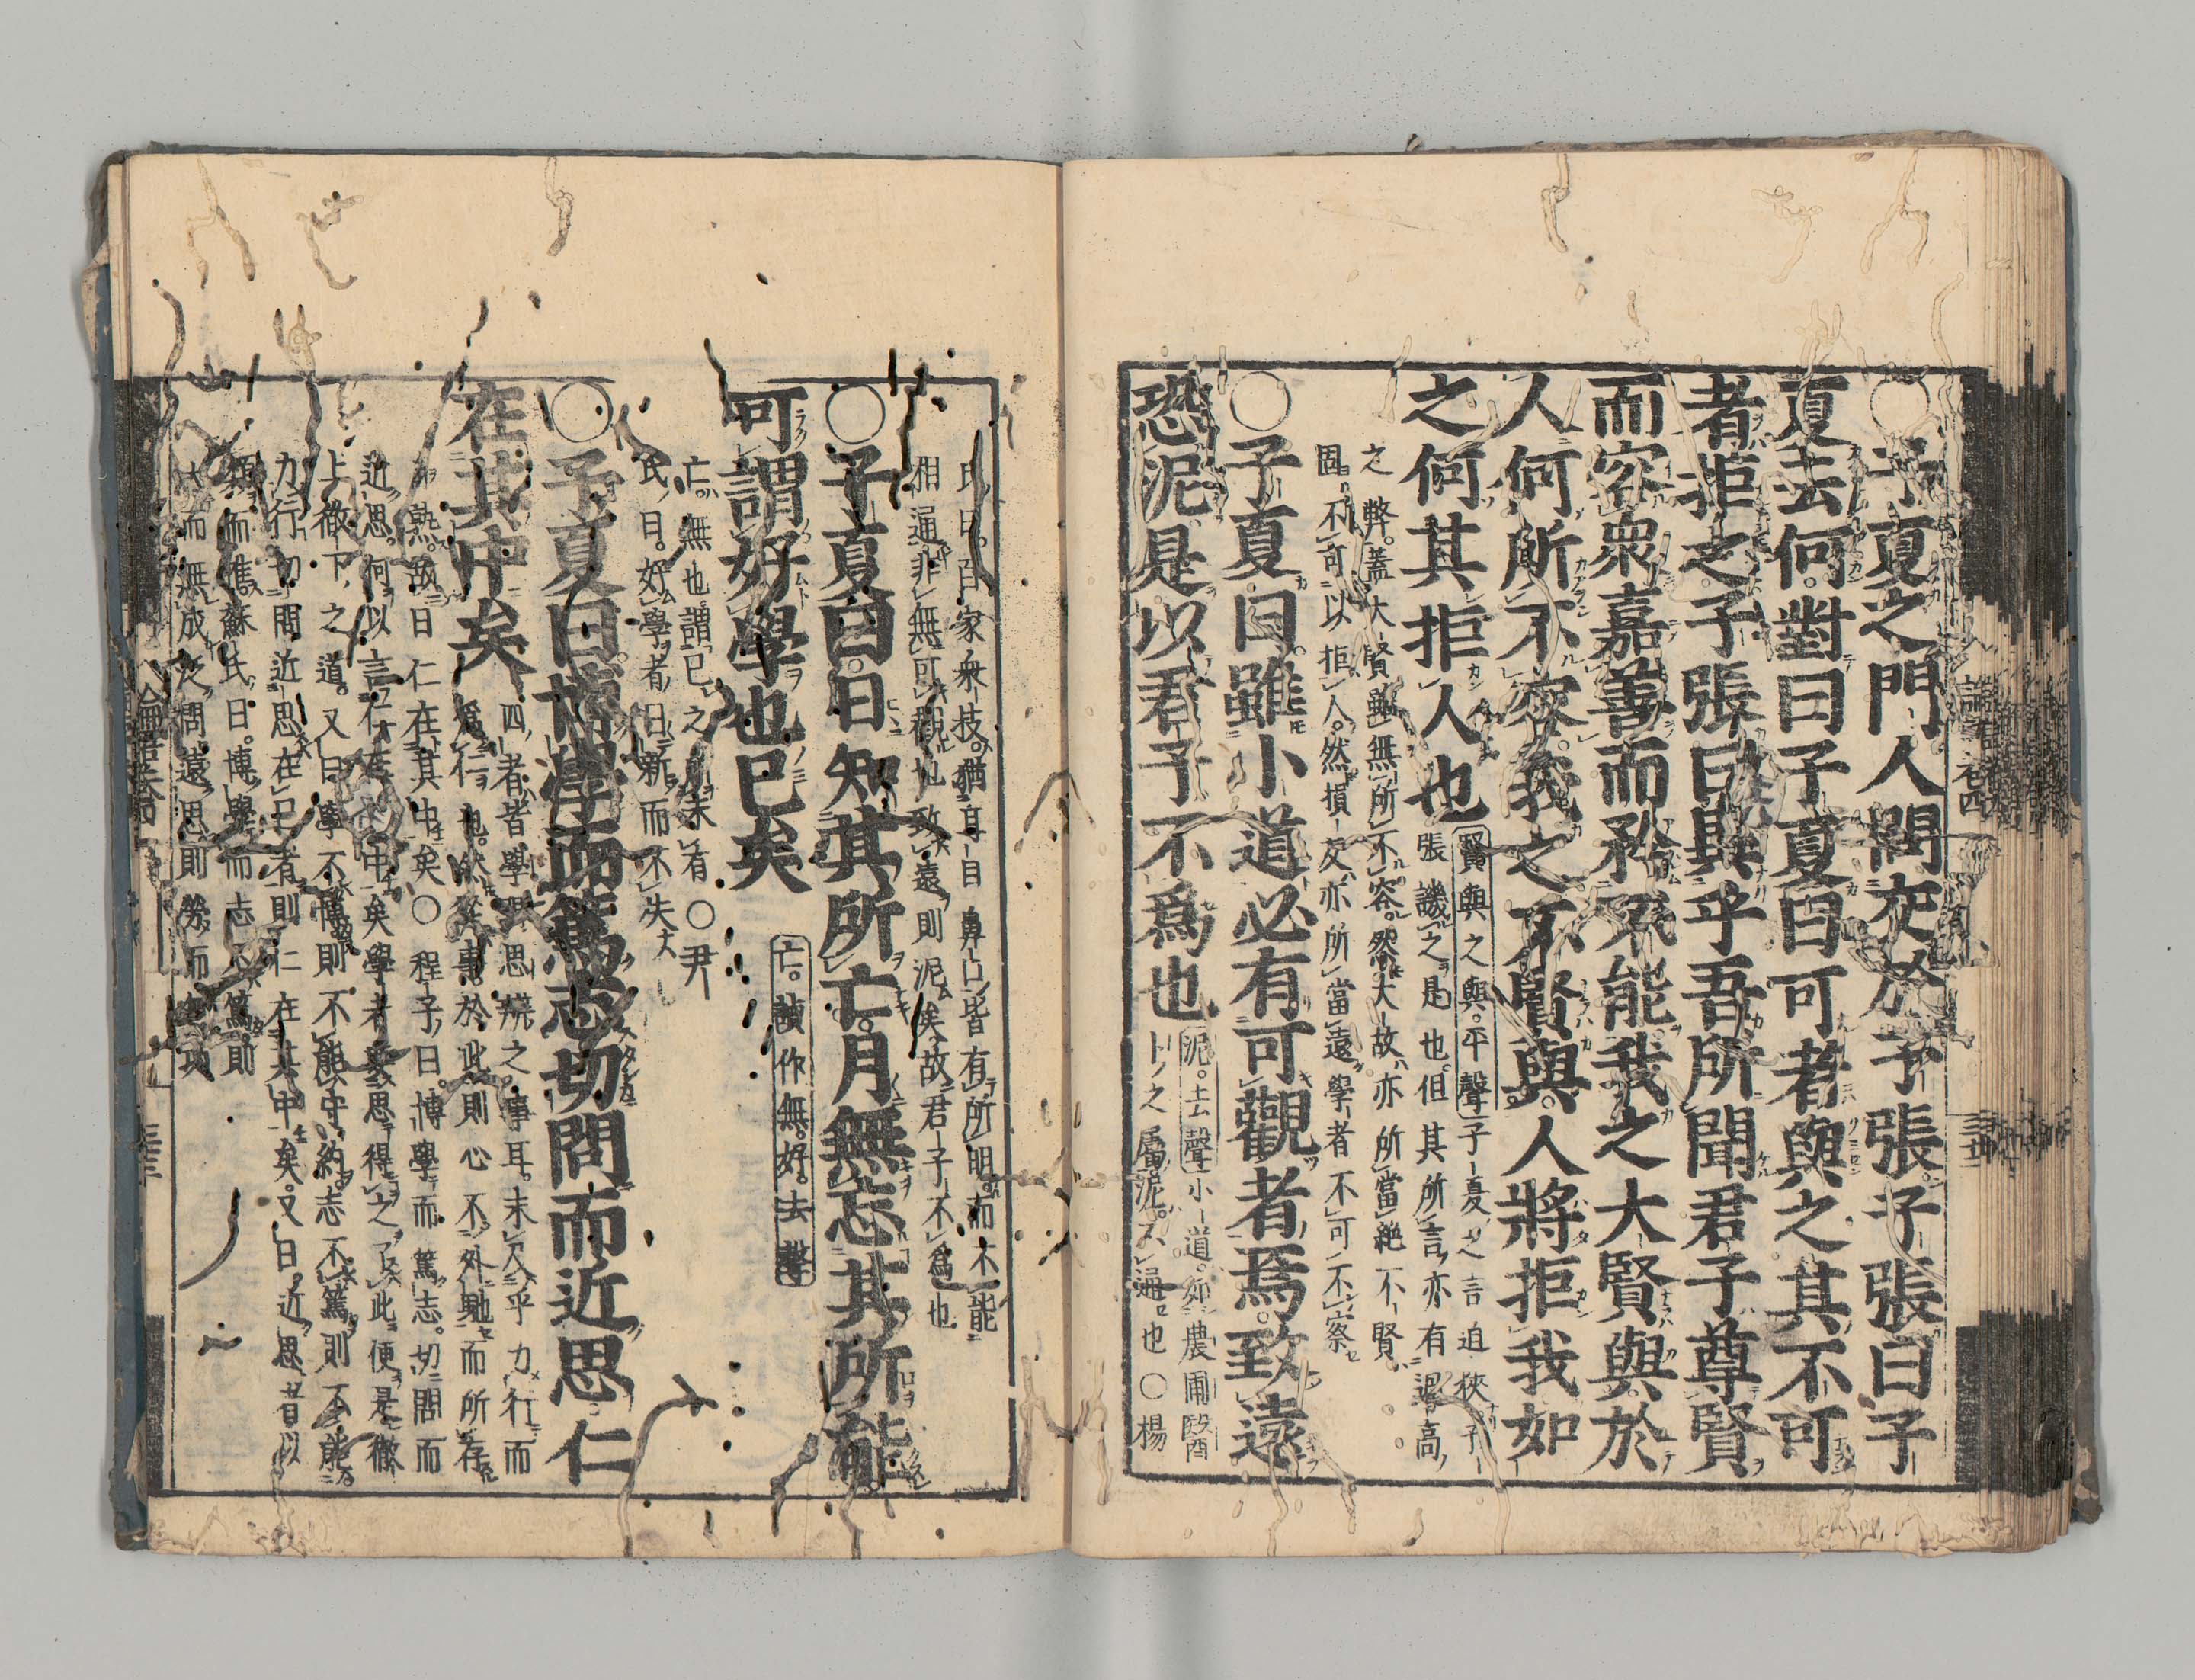 ○子夏之門人問交於子張子張曰子
夏云何對曰子夏曰可者與之其不可
者拒之子張曰異乎吾所聞君子尊賢
而容衆嘉善而矜不能我之大賢與於
人何所不容我之不賢與人將拒我如
之何其拒人也
賢與之與。平聲子夏之言迫狹子
張譏之是也。但其所言亦有過高
之弊。蓋大賢雖無所不容。然大故亦所當絶不賢
固不可以拒人。然損友亦所當遠學者不可不察
○子夏曰雖小道必有可觀者焉致遠
恐泥是以君子不為也
泥。去聲小道。如農圃醫
卜之屬泥。不通也○楊
氏曰。百家衆技。猶耳目鼻口皆有所明而不能
相通非無可觀也致遠則泥矣故君子不為也
○子夏曰日知其所亡月無忘其所能
可謂好學也已矣
亡。讀作無。好。去聲
亡。無也。謂已之所未有○尹
氏曰。好學者日新而不失
○子夏曰博學而篤志切問而近思仁
在其中矣
四者皆學問思辨之事耳。未及乎力行而
為仁也。然從事於此則心不外馳而所存
自熟。故曰仁在其中矣○程子曰。博學而篤志。切問而
近思。何以言仁在其中矣學者要思得之了此便是徹
上徹下之道。又曰學不博則不能守約。志不篤則不能
力行。切問近思在已者則仁在其中矣。又曰。近思者以
類而推蘇氏曰。博學而志不篤。則
大而無成泛問遠思則勞而無功